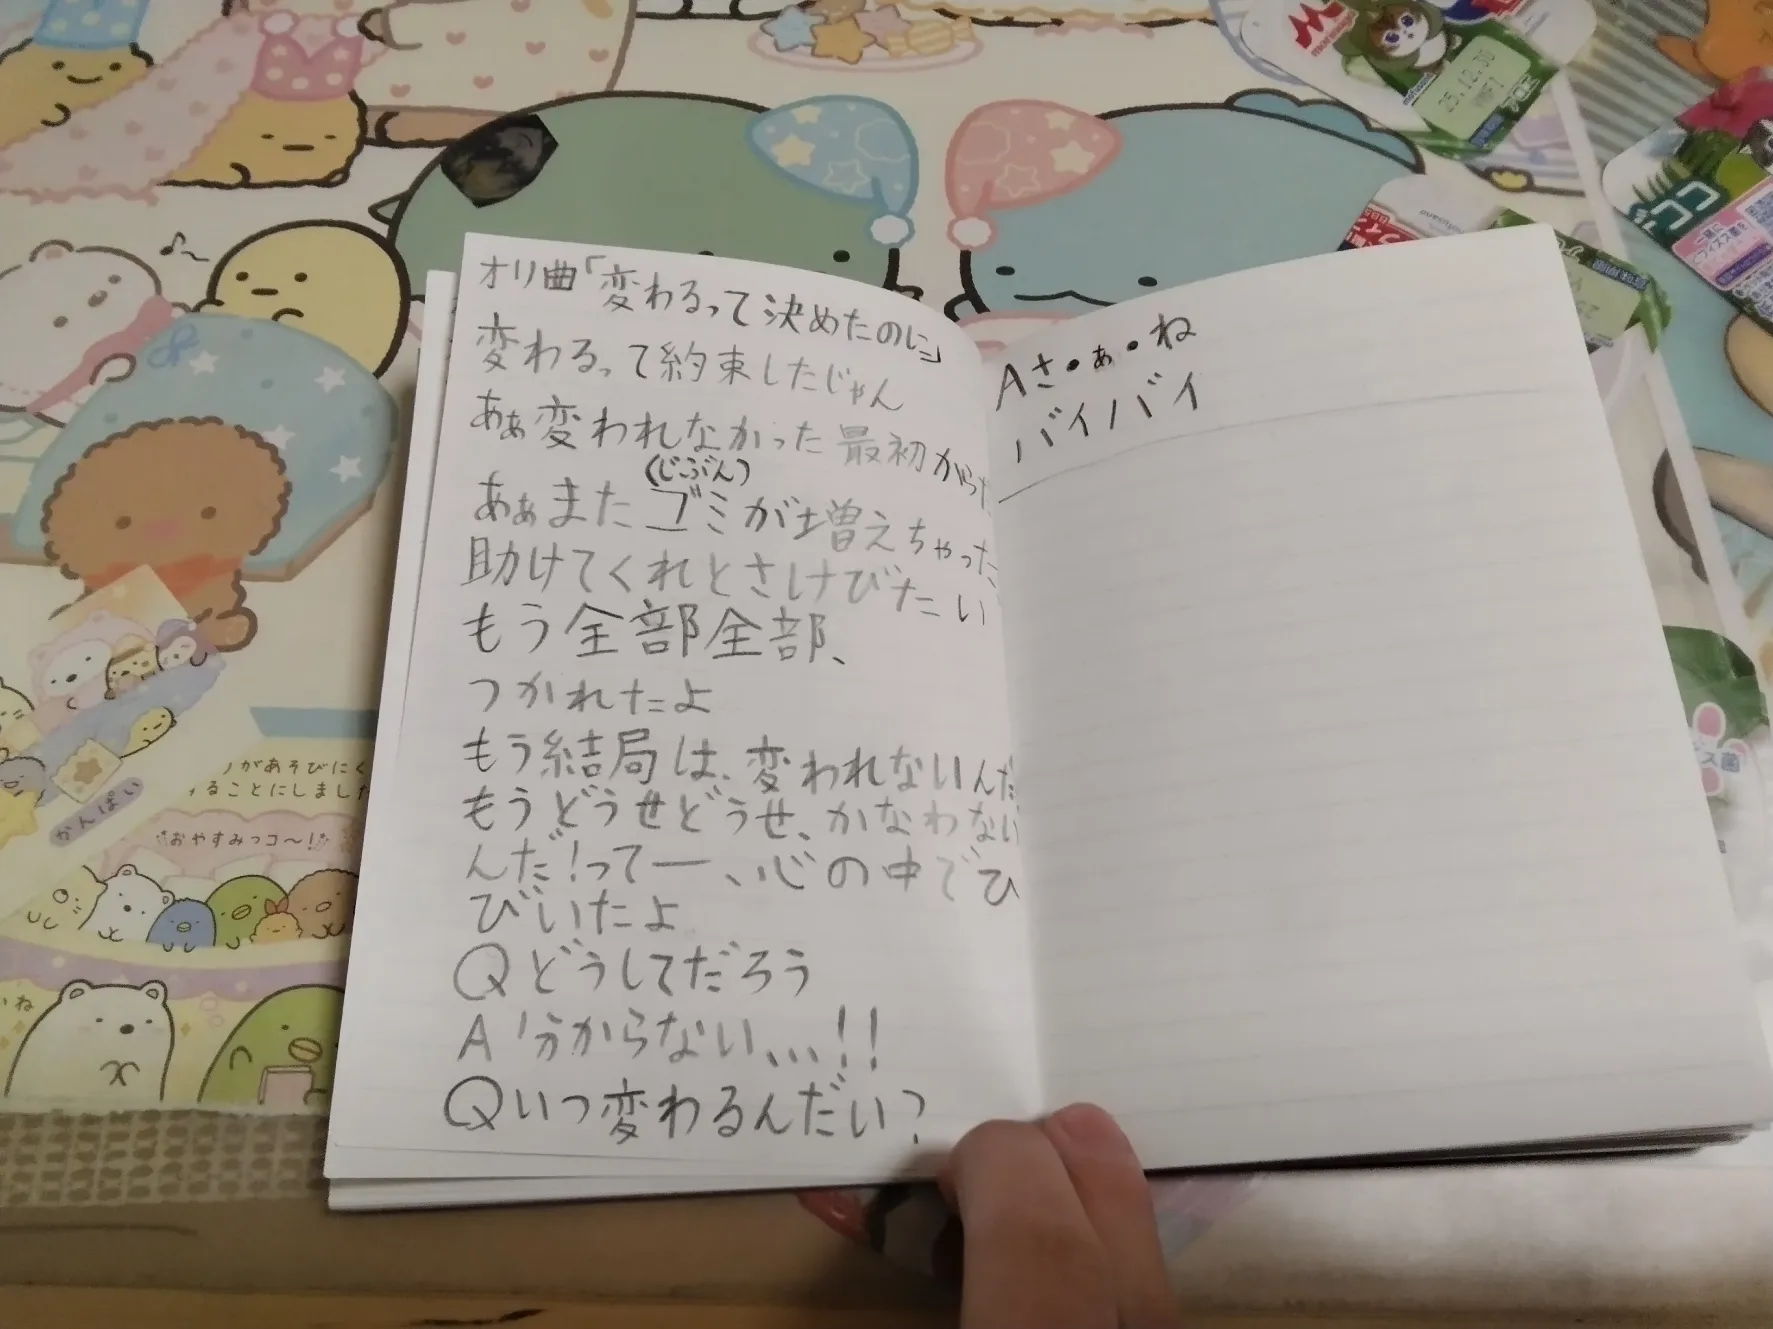 オリ曲「変わるって決めたのに」
変わるって約束したじゃん
あぁ変われなかった最初からだ
(じぶん)
あぁまたゴミが増えちゃった
助けてくれとさけびたい
もう全部全部、
つかれたよ
もう結局は、変われないんだ
もうどうせどうせ、かなわない
んだ!ってー、心の中でひ
びいたよ
Qどうしてだろう
A 分からない、、、!!
Qいつ変わるんだい?
Aさ・ぁ・ね
バイバイ
morinaga
mofusand
25.12.30
アロエ
ココ
一緒に
があそびにく
ることにしました
おやすみっコ〜!
かんぱい
いね
ス菌